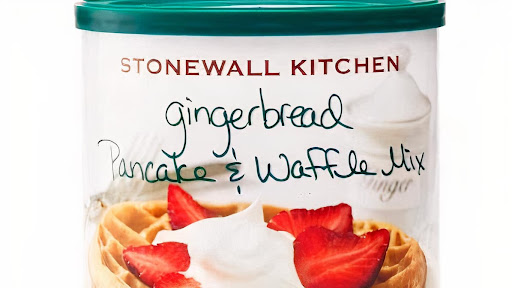 STONEWALL KITCHEN
gingerbread
Pancake & Waffle Mix
Ginger